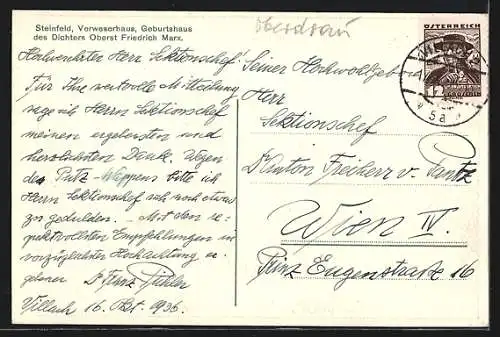 Steinfeld, Verweserhaus, Geburtshaus
des Dichters Oberst Friedrich Marx.
Oberdrau
Hochverehrter Herr Sektionschef!
Für Ihre wertvolle Mitteilung
sage ich Herrn Sektionschef
meinen ergebensten und
herzlichsten Dank. Wegen
des Putz-Wappens bitte ich
Herrn Sektionschef sich noch etwas
zu gedulden. – Mit den re-
spektvollsten Empfehlungen in
vorzüglichster Hochachtung er-
gebener Dr Franz Pichler
Villach 16. Okt. 1936.
ÖSTERREICH
12
VILLACH 2
5a
Seiner Hochwohlgeb
Herr
Sektionschef
Dr Anton Freiherr v. Pantz
Wien IV.
Prinz Eugenstraße 16